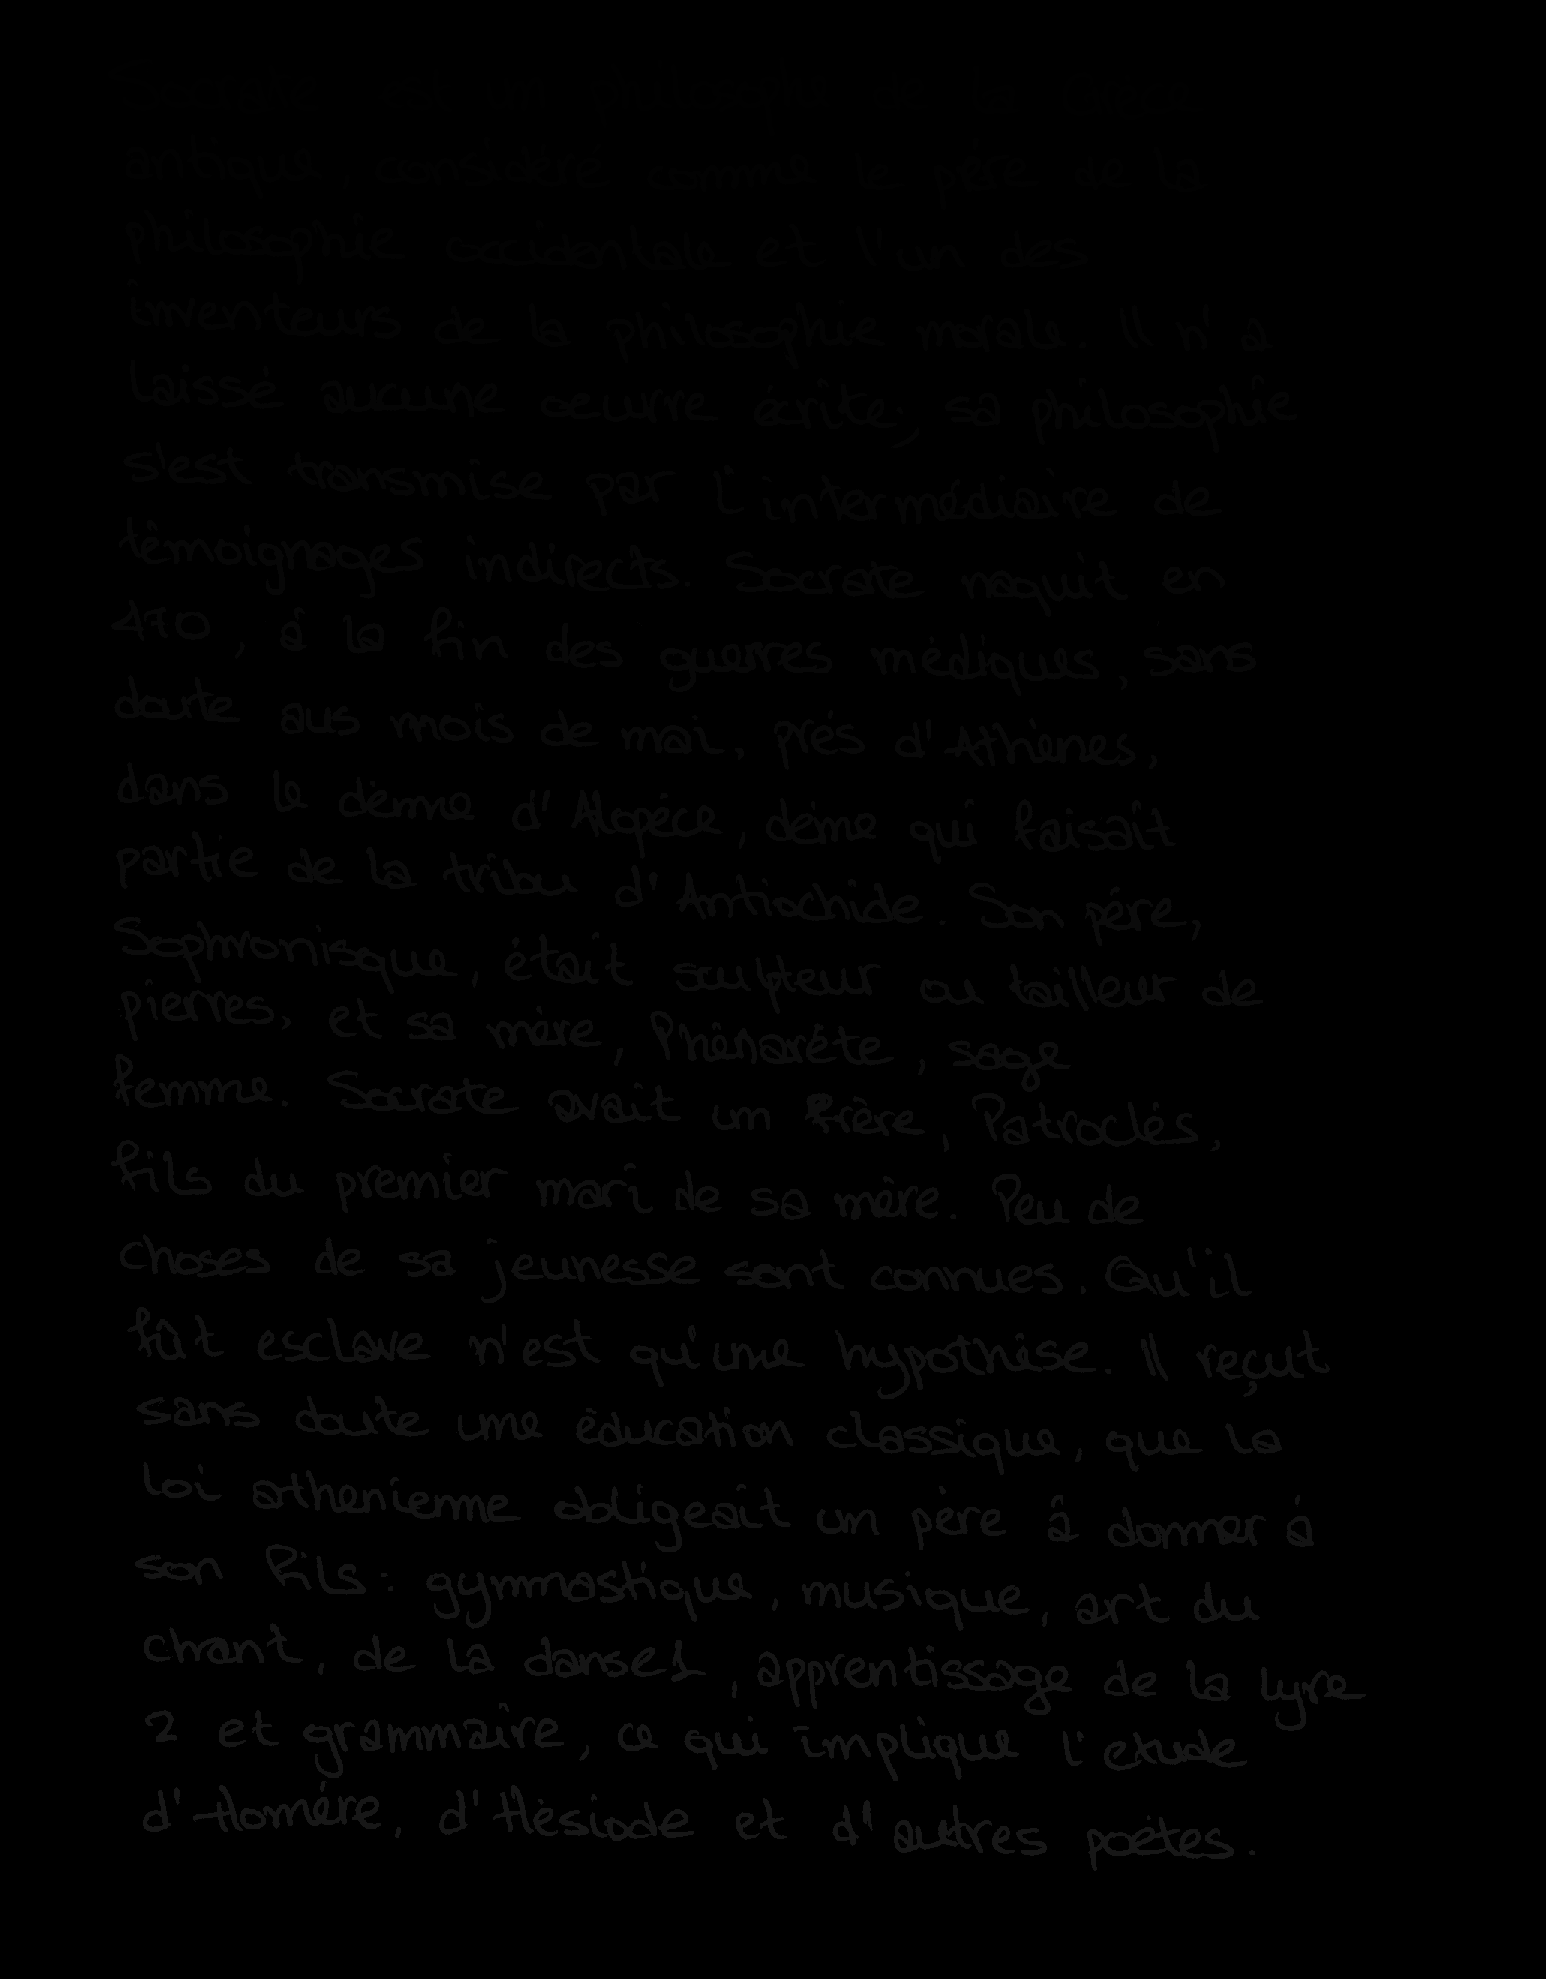 Socrate est un philosophe de la Grèce
antique, considéré comme le père de la
philosophie occidentale et l'un des
inventeurs de la philosophie morale. Il n'a
laissé aucune œuvre écrite; sa philosophie
s'est transmise par l'intermédiaire de
témoignages indirects. Socrate naquit en
470, à la fin des guerres médiques, sans
doute aus mois de mai, prés d'Athènes,
dans le dème d'Alopèce, dème qui faisait
partie de la tribu d'Antiochide. Son père,
Sophronisque, était sculpteur ou tailleur de
pierres, et sa mère, Phénarète, sage
femme. Socrate avait un frère, Patroclès,
fils du premier mari de sa mère. Peu de
choses de sa jeunesse sont connues. Qu'il
fût esclave n'est qu'une hypothèse. Il reçut
sans doute une éducation classique, que la
loi athenienne obligeait un père à donner à
son fils: gymnastique, musique, art du
chant, de la danse1, apprentissage de la lyre
2 et grammaire, ce qui implique l'etude
d'Homère, d'Hésiode et d'autres poètes.